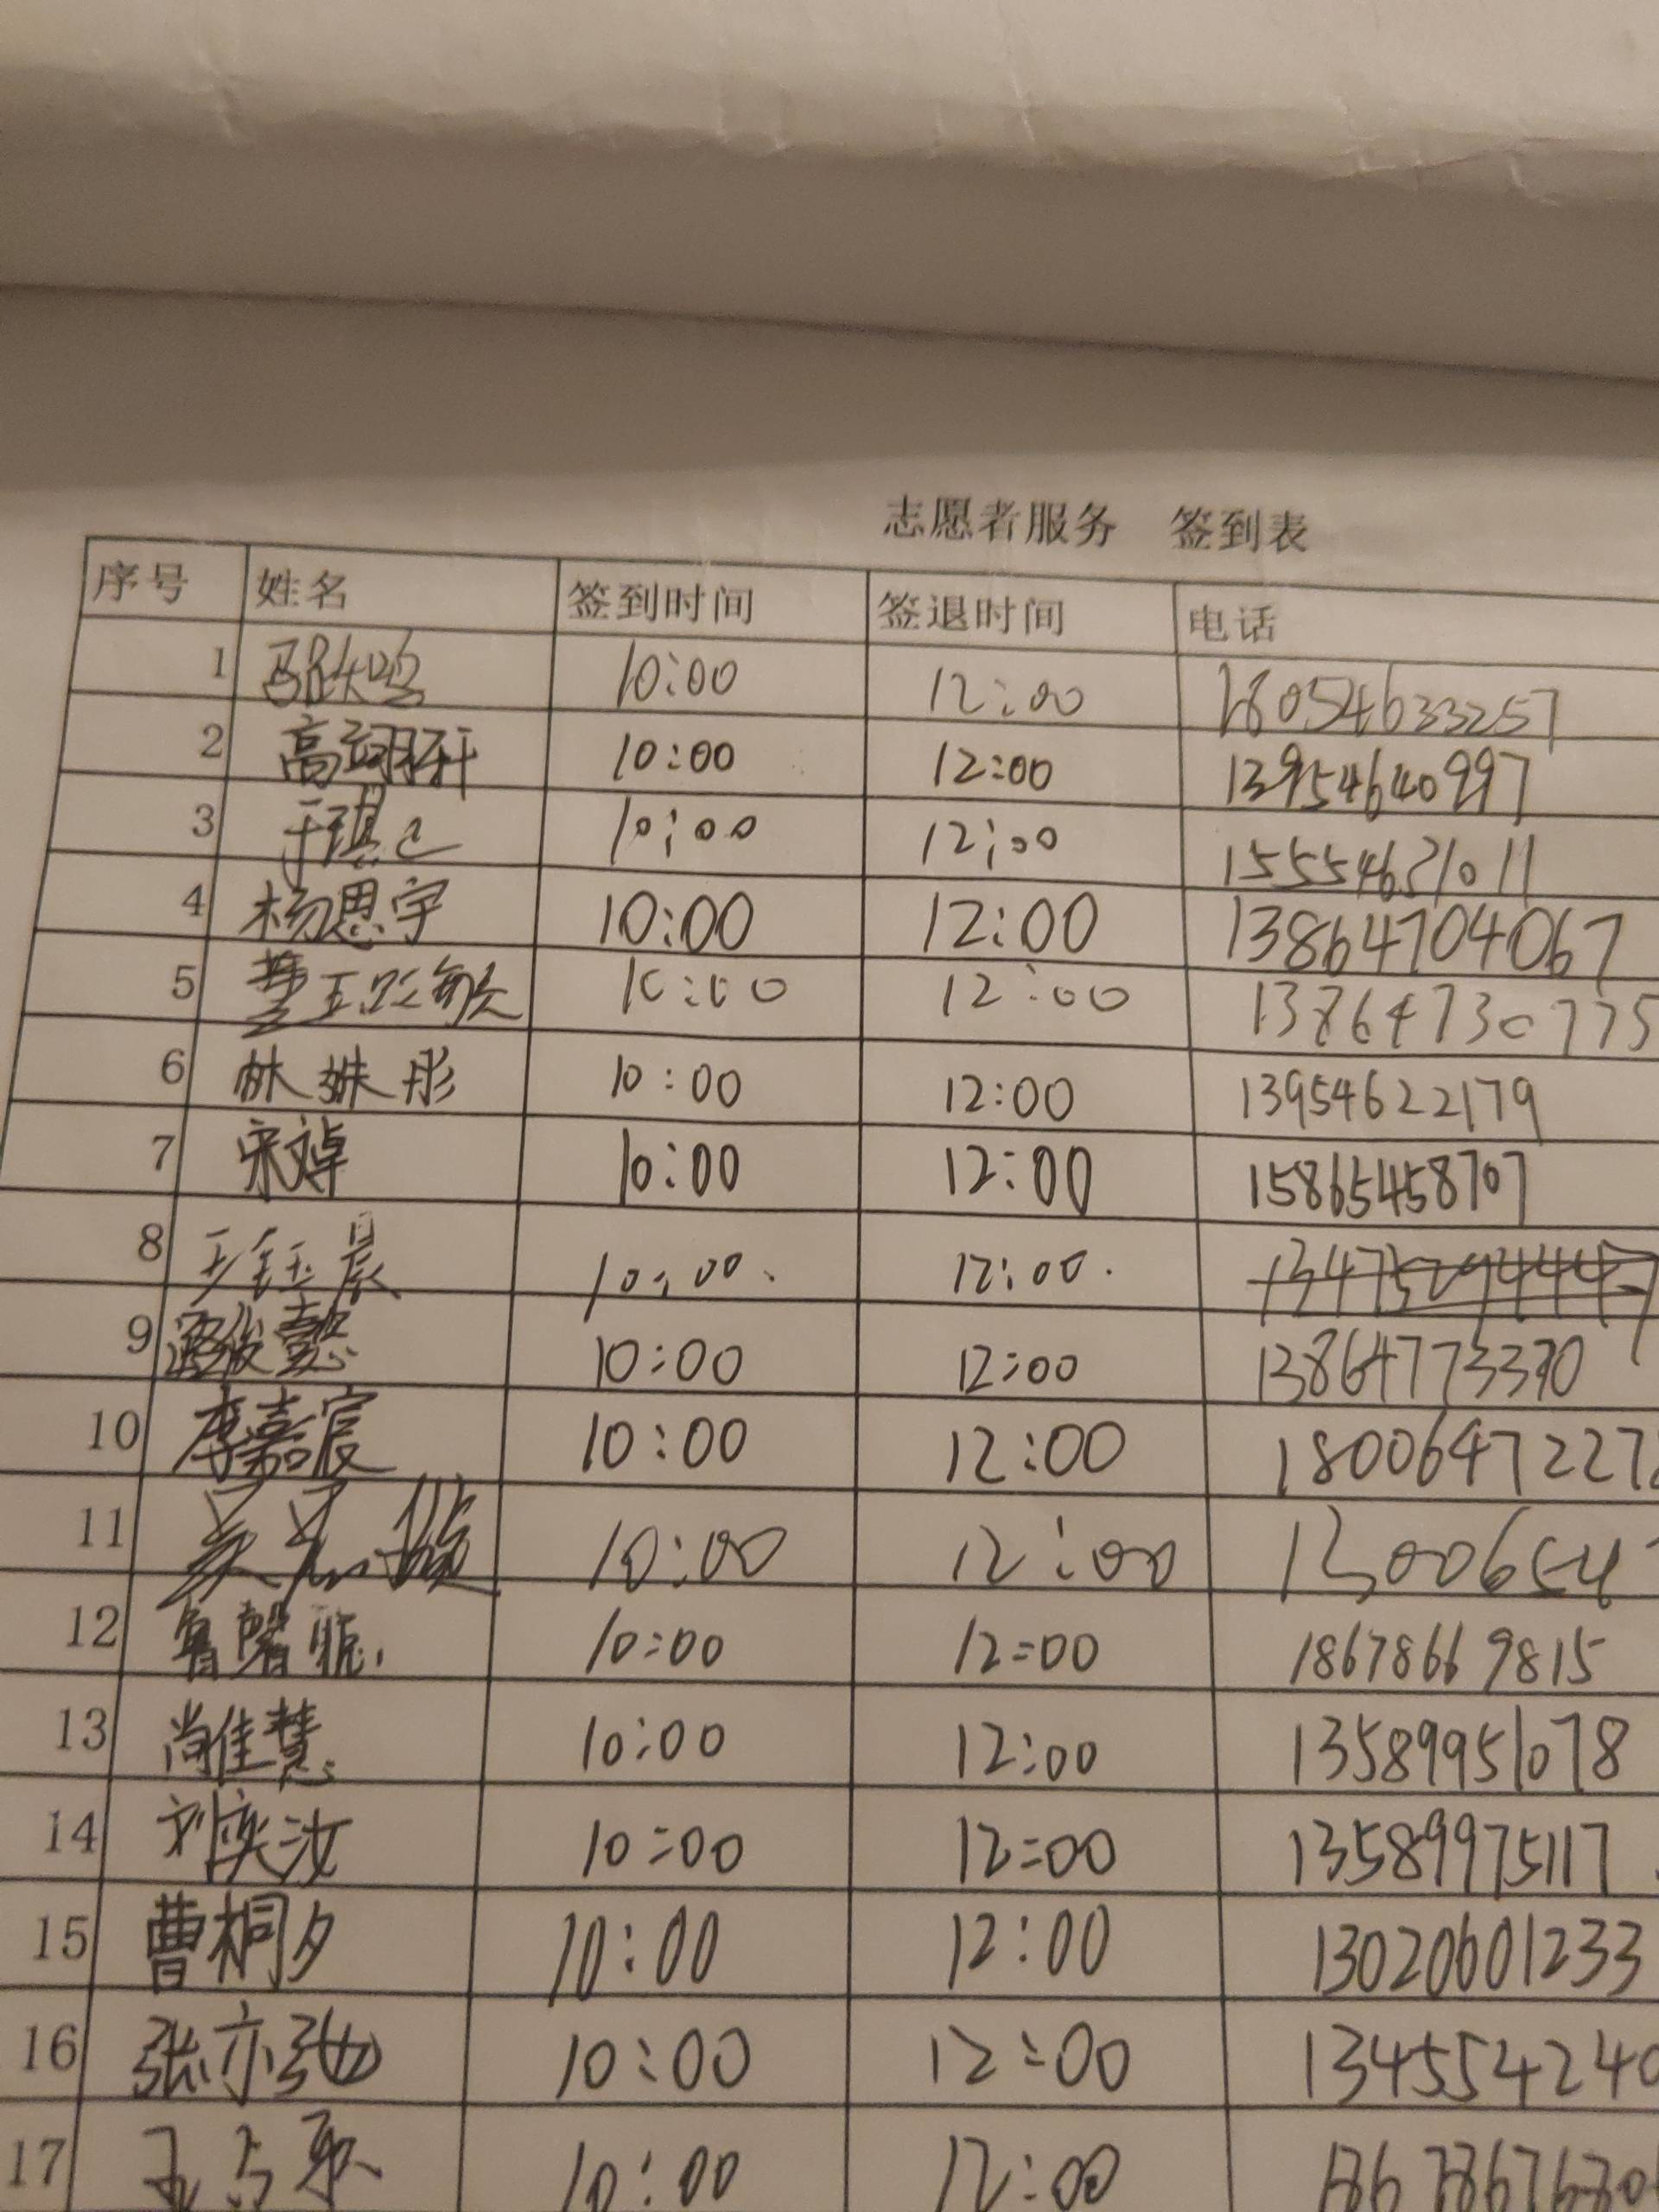 志愿者服务 签到表
序号 姓名 签到时间 签退时间 电话
1 10:00 12:00 18054633257
2 高翊轩 10:00 12:00 13954640997
3 于琪 10:00 12:00 15554631011
4 杨思宇 10:00 12:00 13864704067
5 10:00 12:00 13864730775
6 林姝彤 10:00 12:00 13954622179
7 宋文卓 10:00 12:00 15865458707
8 王钰晨 10:00 12:00
9 10:00 12:00 13864773370
10 李嘉宸 10:00 12:00 1800647227
11 10:00 12:00 1300654
12 10:00 12:00 18678669815
13 尚佳慧 10:00 12:00 13589951078
14 刘奕汝 10:00 12:00 13589975117
15 曹桐夕 10:00 12:00 13020601233
16 张亦弛 10:00 12:00 134554240
17 10:00 12:00